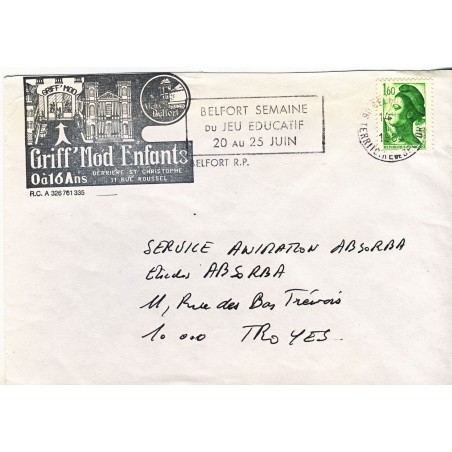 GRIFF' MOD
Belfort
Griff' Mod Enfants
0 à 16 Ans
DERRIÈRE ST CHRISTOPHE
11 RUE ROUSSEL
R.C. A 326 761 335
BELFORT SEMAINE
DU JEU EDUCATIF
20 AU 25 JUIN
BELFORT R.P.
1,60
TERRITOIRE DE BELFORT
SERVICE ANIMATION ABSORBA
Etudes ABSORBA
11, Rue des Bas Trévois
10 000 TROYES.